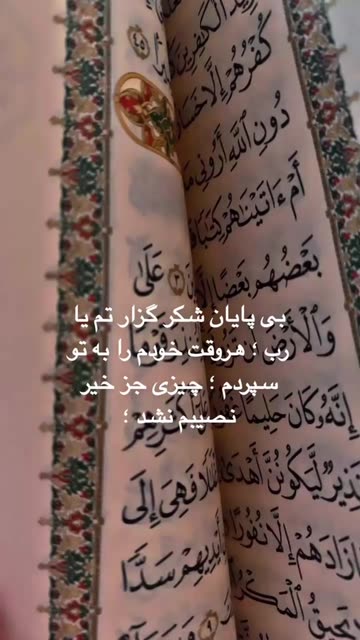 كُفْرُهُمْ إِلَّا
دُونِ اللَّهِ أَرُونِي
أَمْ ءَاتَيْنَٰهُمْ كِتَٰبًا
بَعْضُهُم بَعْضًا
وَالْأَرْضَ
إِنَّهُۥ كَانَ حَلِيمًا
لَّيَكُونُنَّ أَهْدَىٰ
زَادَهُمْ إِلَّا نُفُورًا
الْمَكْرُ
٤٥
عَلَىٰ
فَهِيَ إِلَى
أَيْدِيهِمْ سَدًّا
بی پایان شکر گزار تم یا
رب ؛ هروقت خودم را به تو
سپردم ؛ چیزی جز خیر
نصیبم نشد ؛